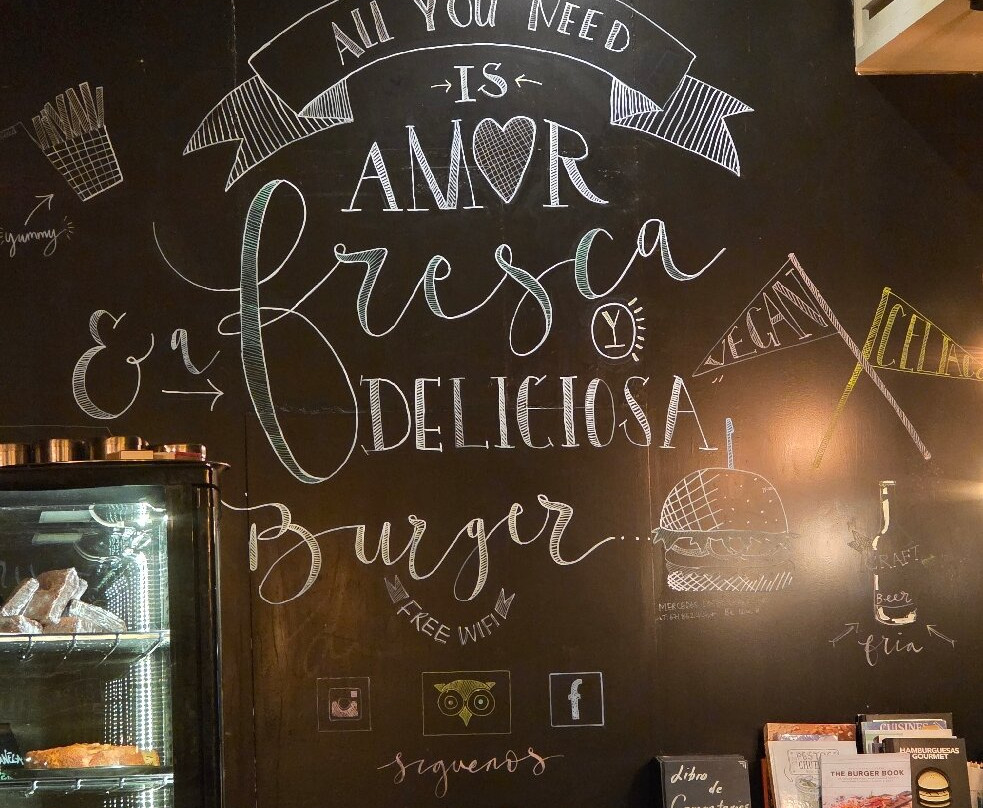 ALL YOU NEED
IS
AMOR
yummy
& a
fresca
Y
DELICIOSA
Burger...
VEGAN
FREE WIFI
CRAFT
Beer
fria
f
siguenos
Libro
de
CUISINES
HAMBURGUESAS
GOURMET
THE BURGER BOOK